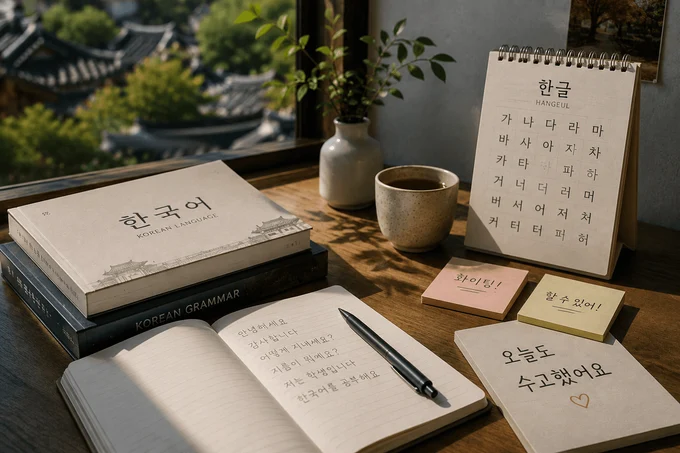 한국어
KOREAN LANGUAGE
KOREAN GRAMMAR
안녕하세요
감사합니다
어떻게 지내세요?
지름이 뭐예요?
저는 학생입니다
한국어를 공부해요
한글
HANGEUL
가 나 다 라 마
바 사 아 자 차
카 타 파 하
거 너 더 러 머
버 서 어 저 처
커 터 터 허
화이팅!
할 수 있어!
오늘도
수고했어요